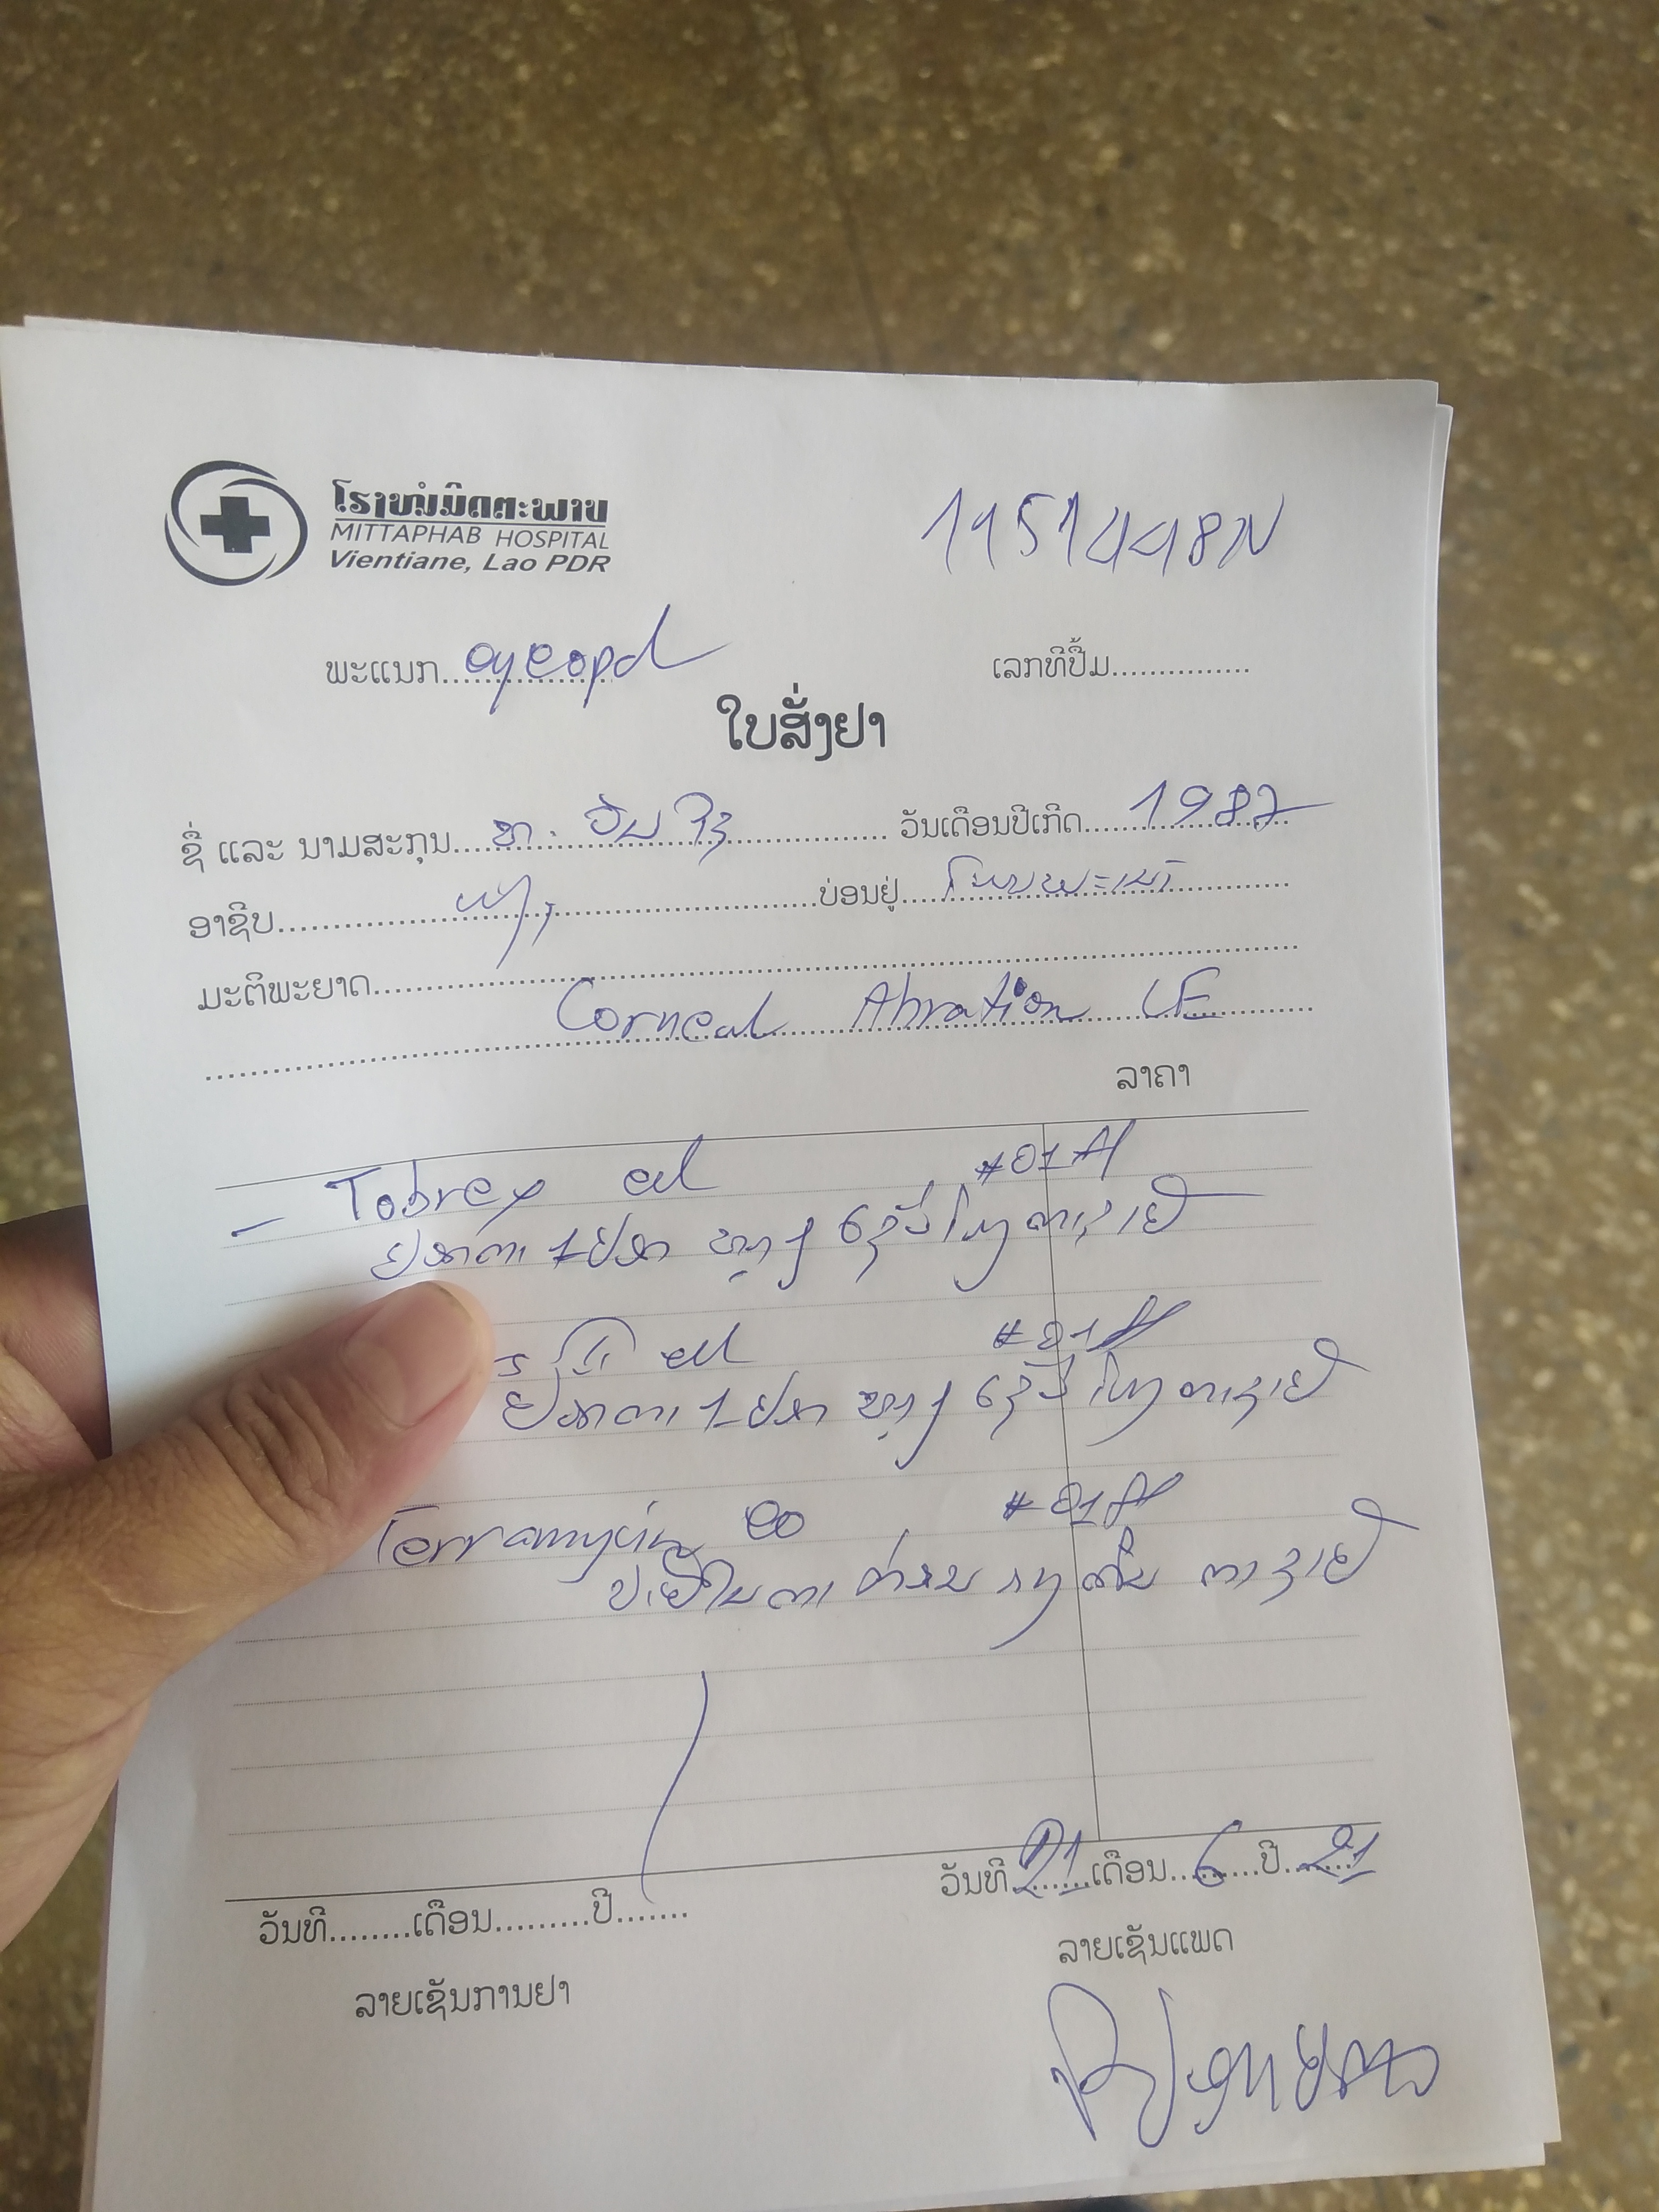 ໂຮງໝໍມິດຕະພາບ
MITTAPHAB HOSPITAL
Vientiane, Lao PDR
ພະແນກ.... eyeopd
ເລກທີປື້ມ...............
ໃບສັ່ງຢາ
ຊື່ ແລະ ນາມສະກຸນ.... ວັນເດືອນປີເກີດ.... 1987
ອາຊີບ.... ບ່ອນຢູ່.... ໂພນພະເນົາ
ມະຕິພະຍາດ....
Corneal Abration LE
ລາຄາ
- Tobrex ed #01
ຢອດຕາ 1 ຢອດ ທຸກໆ 6 ຊົ່ວໂມງ ຕາຊ້າຍ
ed #01
ຢອດຕາ 1 ຢອດ ທຸກໆ 6 ຊົ່ວໂມງ ຕາຊ້າຍ
Terramycin eo #01
ປ້າຍໃນຕາ ກ່ອນ ຕາຊ້າຍ
ວັນທີ 21 ເດືອນ 6 ປີ 21
ວັນທີ........ເດືອນ.........ປີ.......
ລາຍເຊັນແພດ
ລາຍເຊັນການຢາ